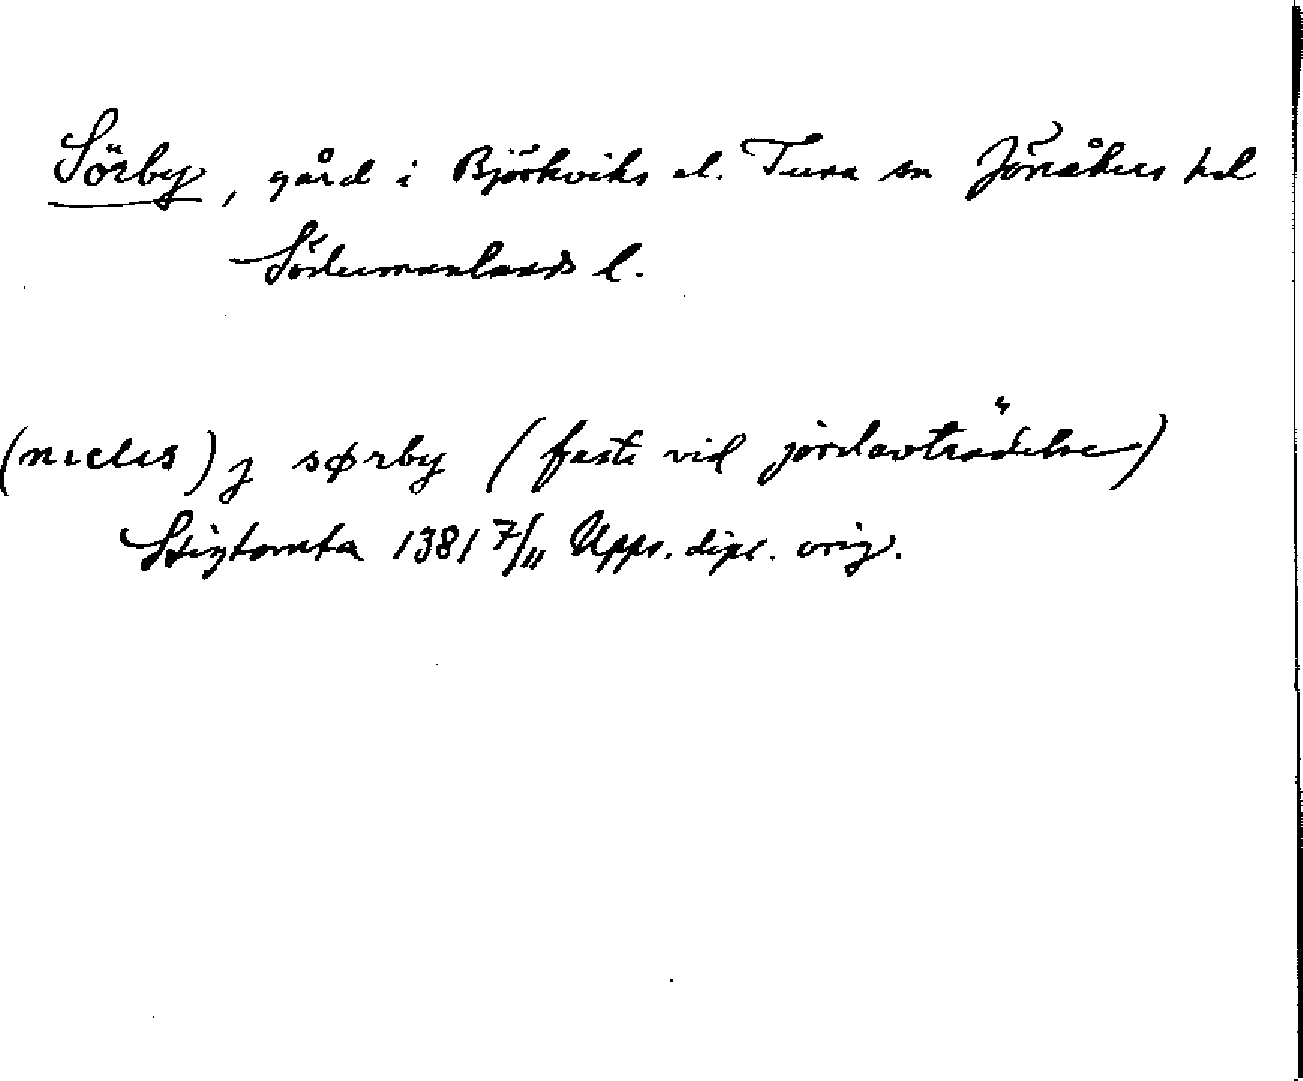 Sörby, gård i Björkviks el. Tuna sn Jönåkers hd
Södermanlands l.
(niclis) j sørby (faste vid jordavträdelse)
Stigtomta 1381 7/11 Upps. dipl. orig.